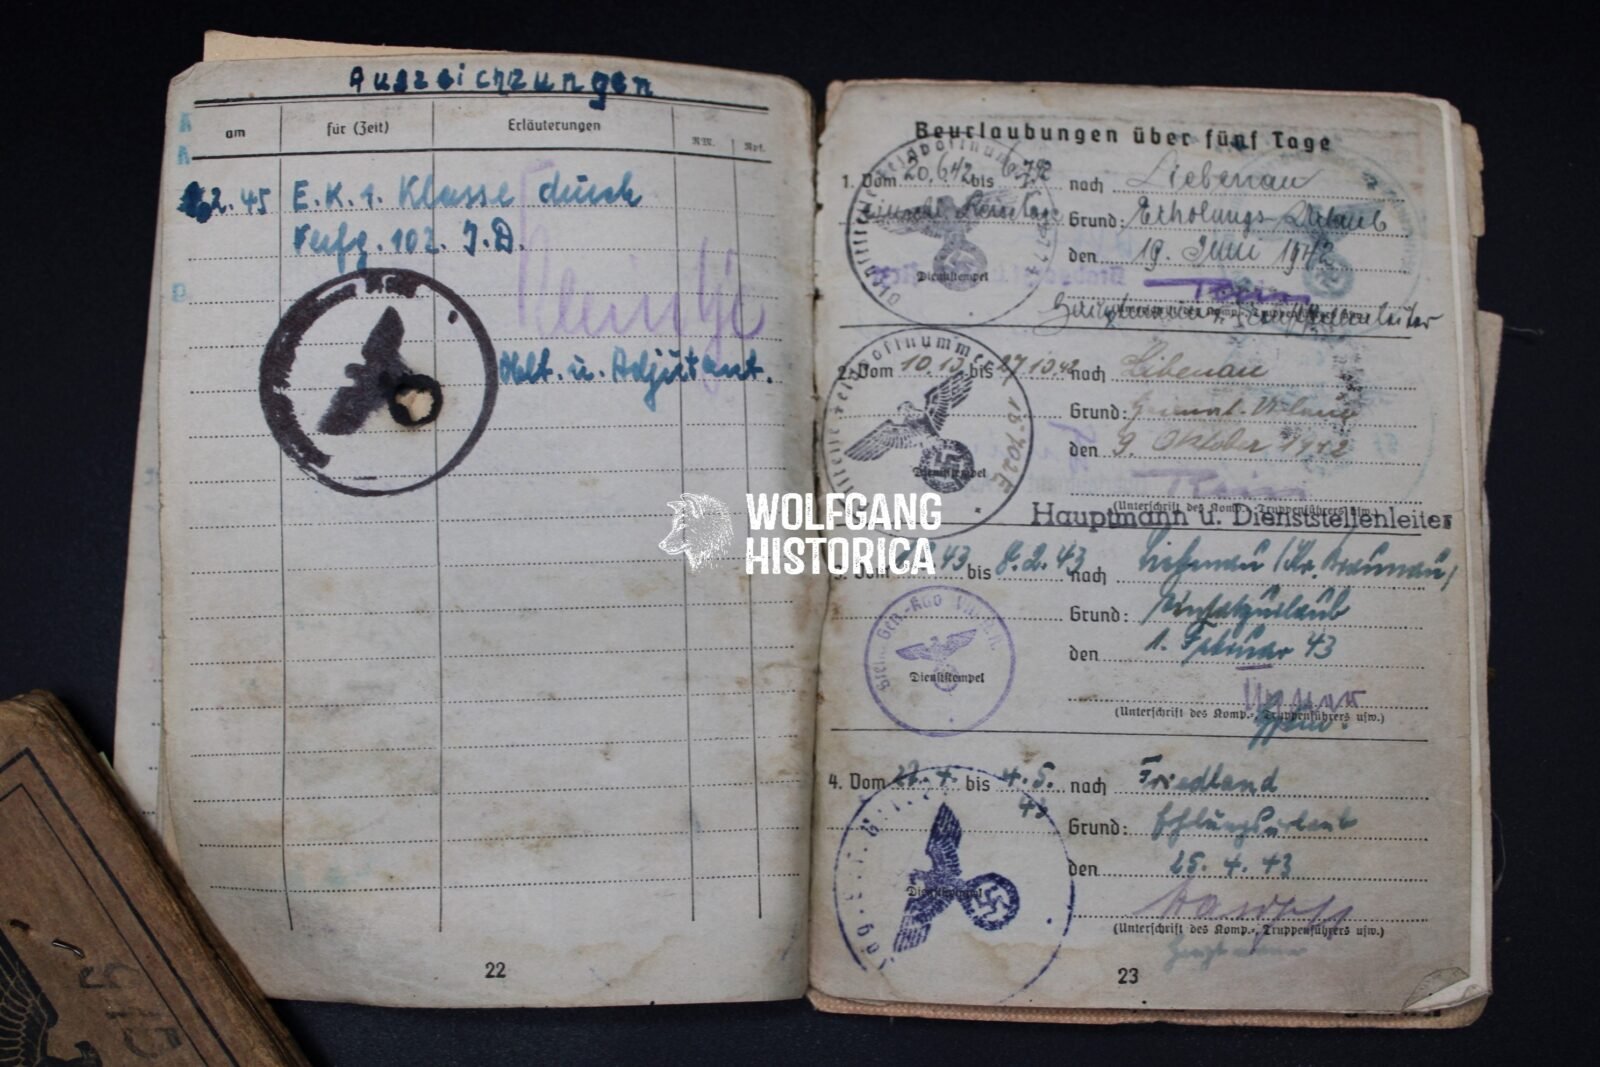 Auszeichnungen
am für (Zeit) Erläuterungen R.W. Rpf.
2. 45 E. K. 1. Klasse durch
Verfg. 102. J. D.
Oblt. u. Adjutant.
22
WOLFGANG
HISTORICA
Beurlaubungen über fünf Tage
1. Vom 20.6.42 bis 6.7.42 nach Liebenau
Reisetage Grund: Erholungs-Urlaub
den 19. Juni 1942
Dienststempel
2. Vom 10.10 bis 27.10.42 nach Liebenau
Feldpostnummer
Grund:
den 9. Oktober 1942
Dienststempel
(Unterschrift des Komp.-, Truppenführers usw.)
Hauptmann u. Dienststellenleiter
3. Vom 43 bis 8.2.43 nach Liebenau (Kr. Braunau)
Grund: Einsatzurlaub
den 1. Februar 43
Dienststempel
(Unterschrift des Komp.-, Truppenführers usw.)
4. Vom 22.4. bis 4.5. nach Friedland
43
Grund: Erholungsurlaub
den 25.4.43
Dienststempel
(Unterschrift des Komp.-, Truppenführers usw.)
Hauptmann
23